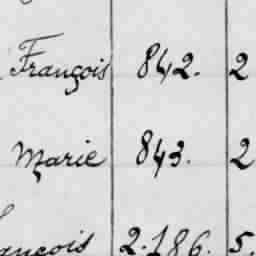 François 842. 2
Marie 843. 2
ançois 2.186. 5.